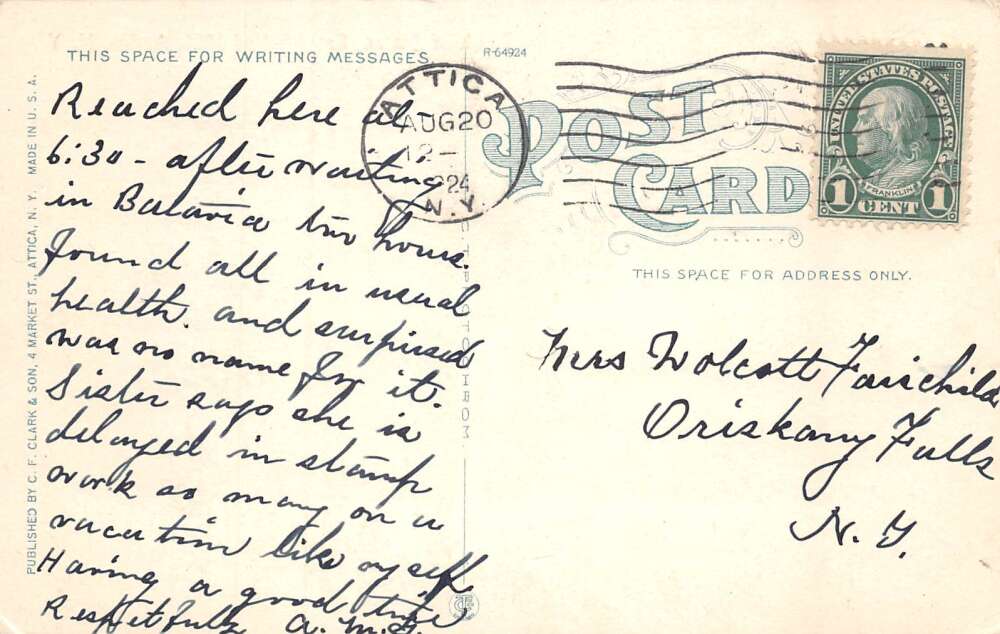 THIS SPACE FOR WRITING MESSAGES.
R-64924
Reached here at
6:30 - after waiting
in Batavia two hours.
Found all in usual
health. and surprised
was no name for it.
Sister says she is
delayed in stamp
work as many on a
vacation like myself
Having a good time
Respectfully A. M.
PUBLISHED BY C. F. CLARK & SON, 4 MARKET ST., ATTICA, N. Y. MADE IN U. S. A.
ATTICA
AUG 20
12-
1924
N.Y.
POST
CARD
UNITED STATES POSTAGE
FRANKLIN
1 CENT 1
THIS SPACE FOR ADDRESS ONLY.
Mrs Wolcott Fairchild
Oriskany Falls
N. Y.